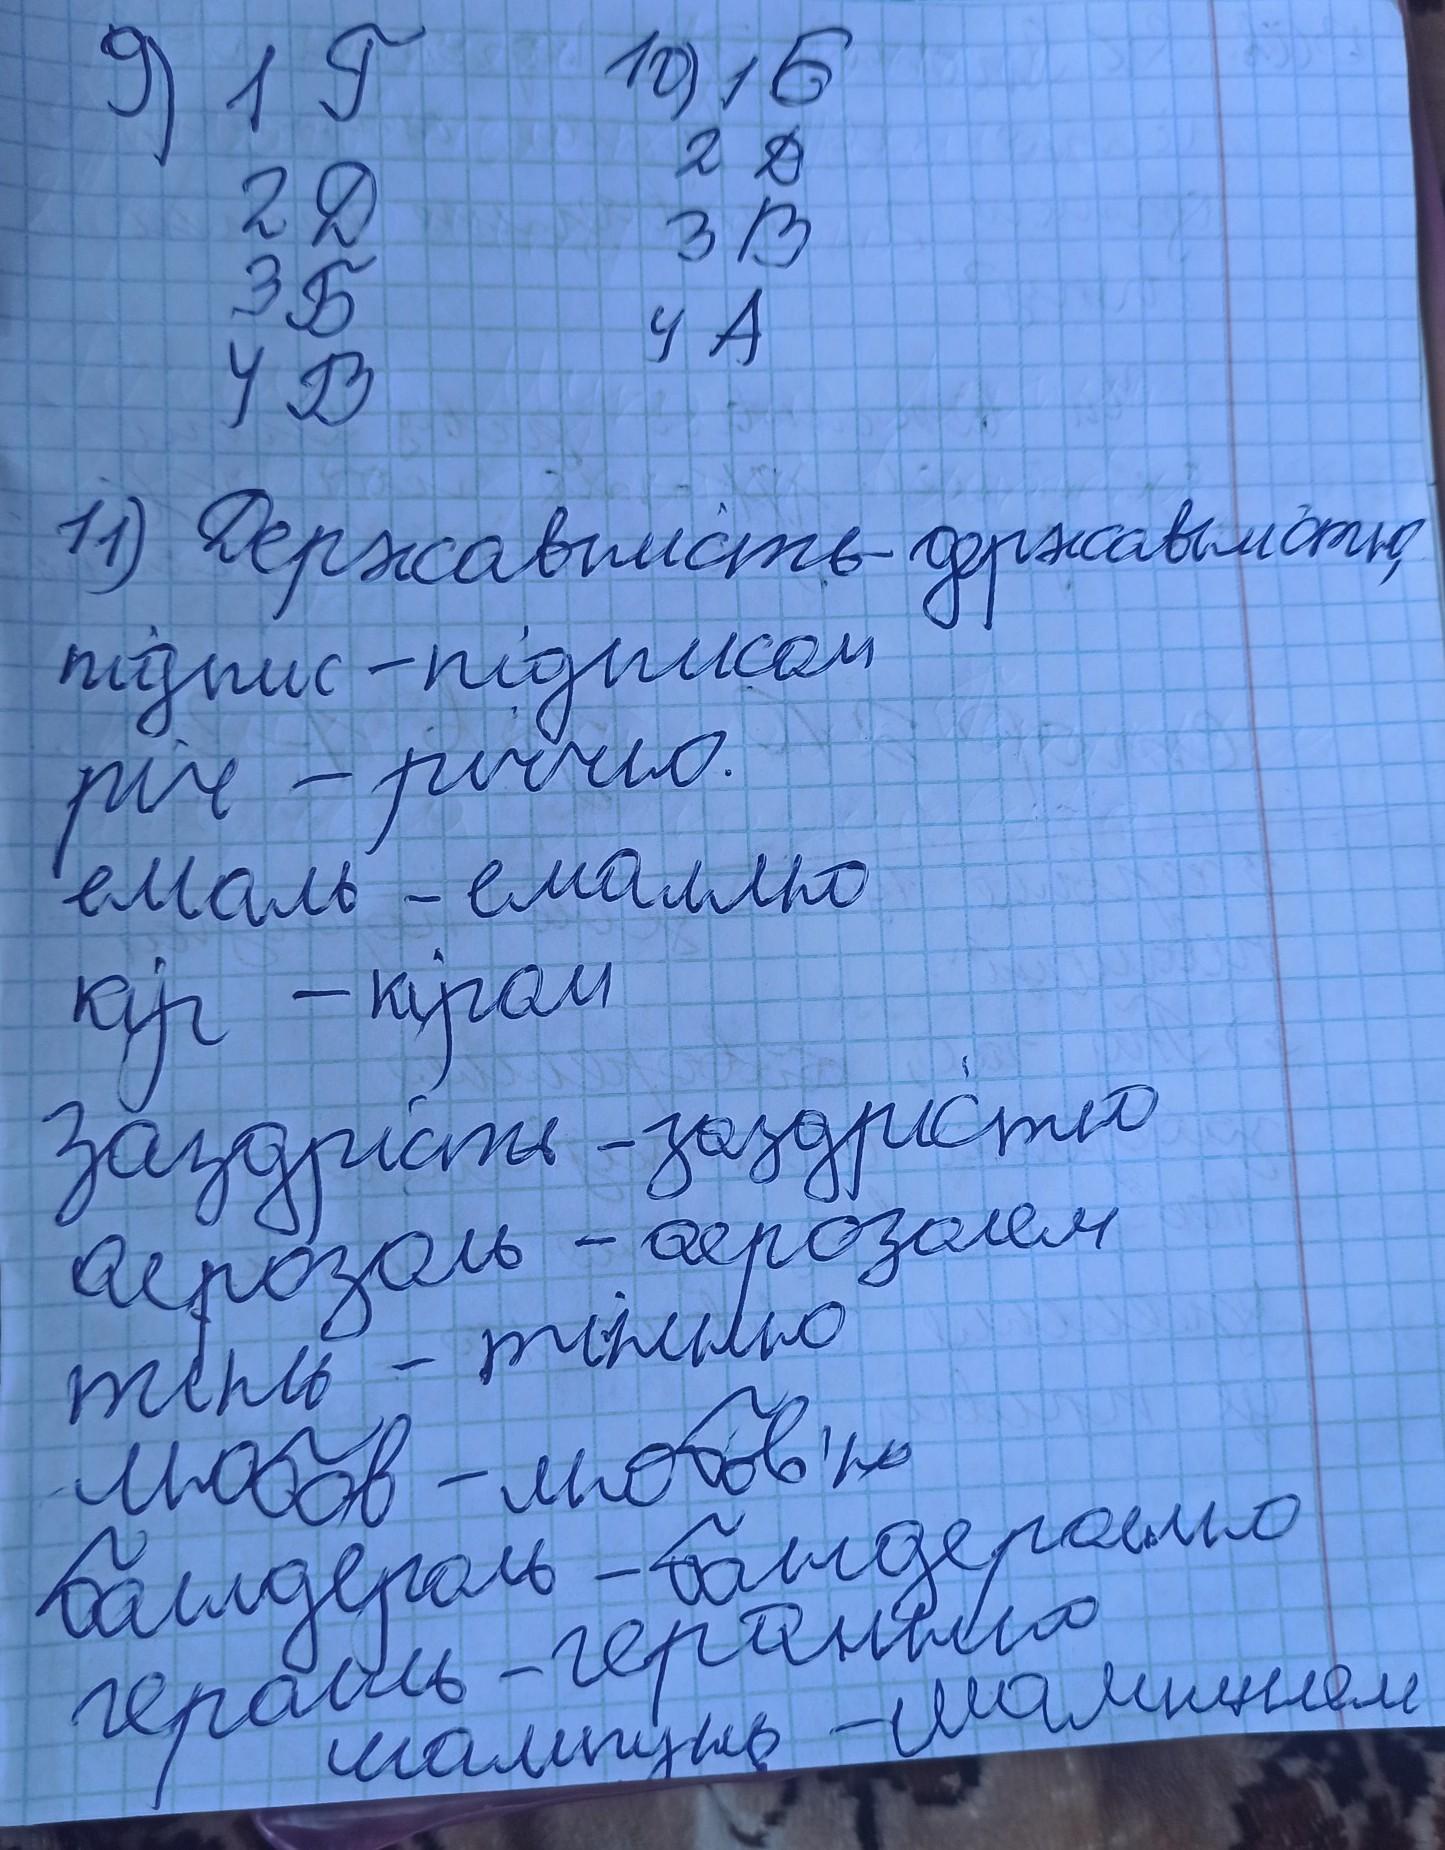 9) 1 Г
2 Д
3 Б
4 В
10) 1 Б
2 Д
3 В
4 А
11) Державність - державністю,
підпис - підписом
річ - річчю.
емаль - емаллю
кір - кіром
Заздрість - заздрістю
аерозоль - аерозолем
тінь - тінню
любов - любов'ю
бандероль - бандероллю
герань - геранню
шампунь - шампунем